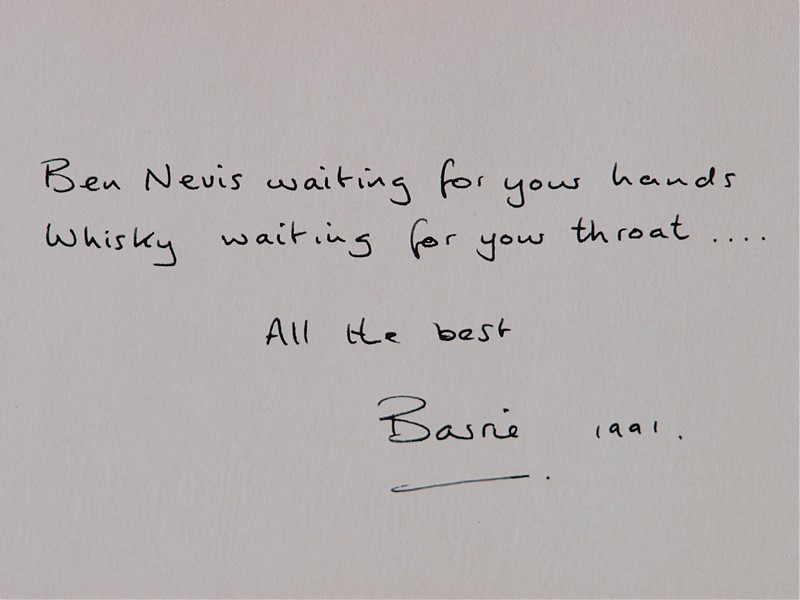 Ben Nevis waiting for your hands
Whisky waiting for your throat ....
All the best
Barrie 1991.